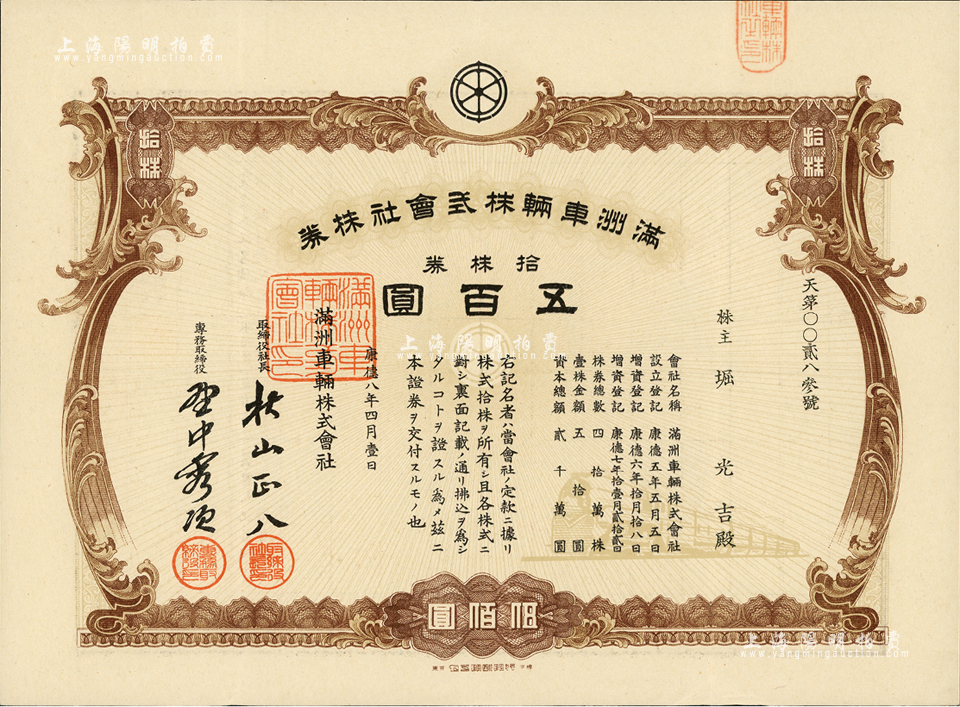 上海陽明拍賣
www.yangmingauction.com
拾株
拾株
滿洲車輛株式會社株券
拾株券
五百圓
天第〇〇貳八參號
株主 堀 光吉殿
會社名稱 滿洲車輛株式會社
設立登記 康德五年五月五日
增資登記 康德六年拾月拾八日
增資登記 康德七年拾壹月貳拾貳日
株券總數 四拾萬株
壹株金額 五拾圓
資本總額 貳千萬圓
右記名者ハ當會社ノ定款ニ據リ
株式拾株ヲ所有シ且各株式ニ
對シ裏面記載ノ通リ拂込ヲ爲シ
タルコトヲ證スル爲メ茲ニ
本證券ヲ交付スルモノ也
康德八年四月壹日
滿洲車輛株式會社
滿洲車輛株式會社印
取締役社長
山正八
專務取締役
中秀
上海陽明拍賣
www.yangmingauction.com
伍佰圓
上海陽明拍賣
www.yangmingauction.com